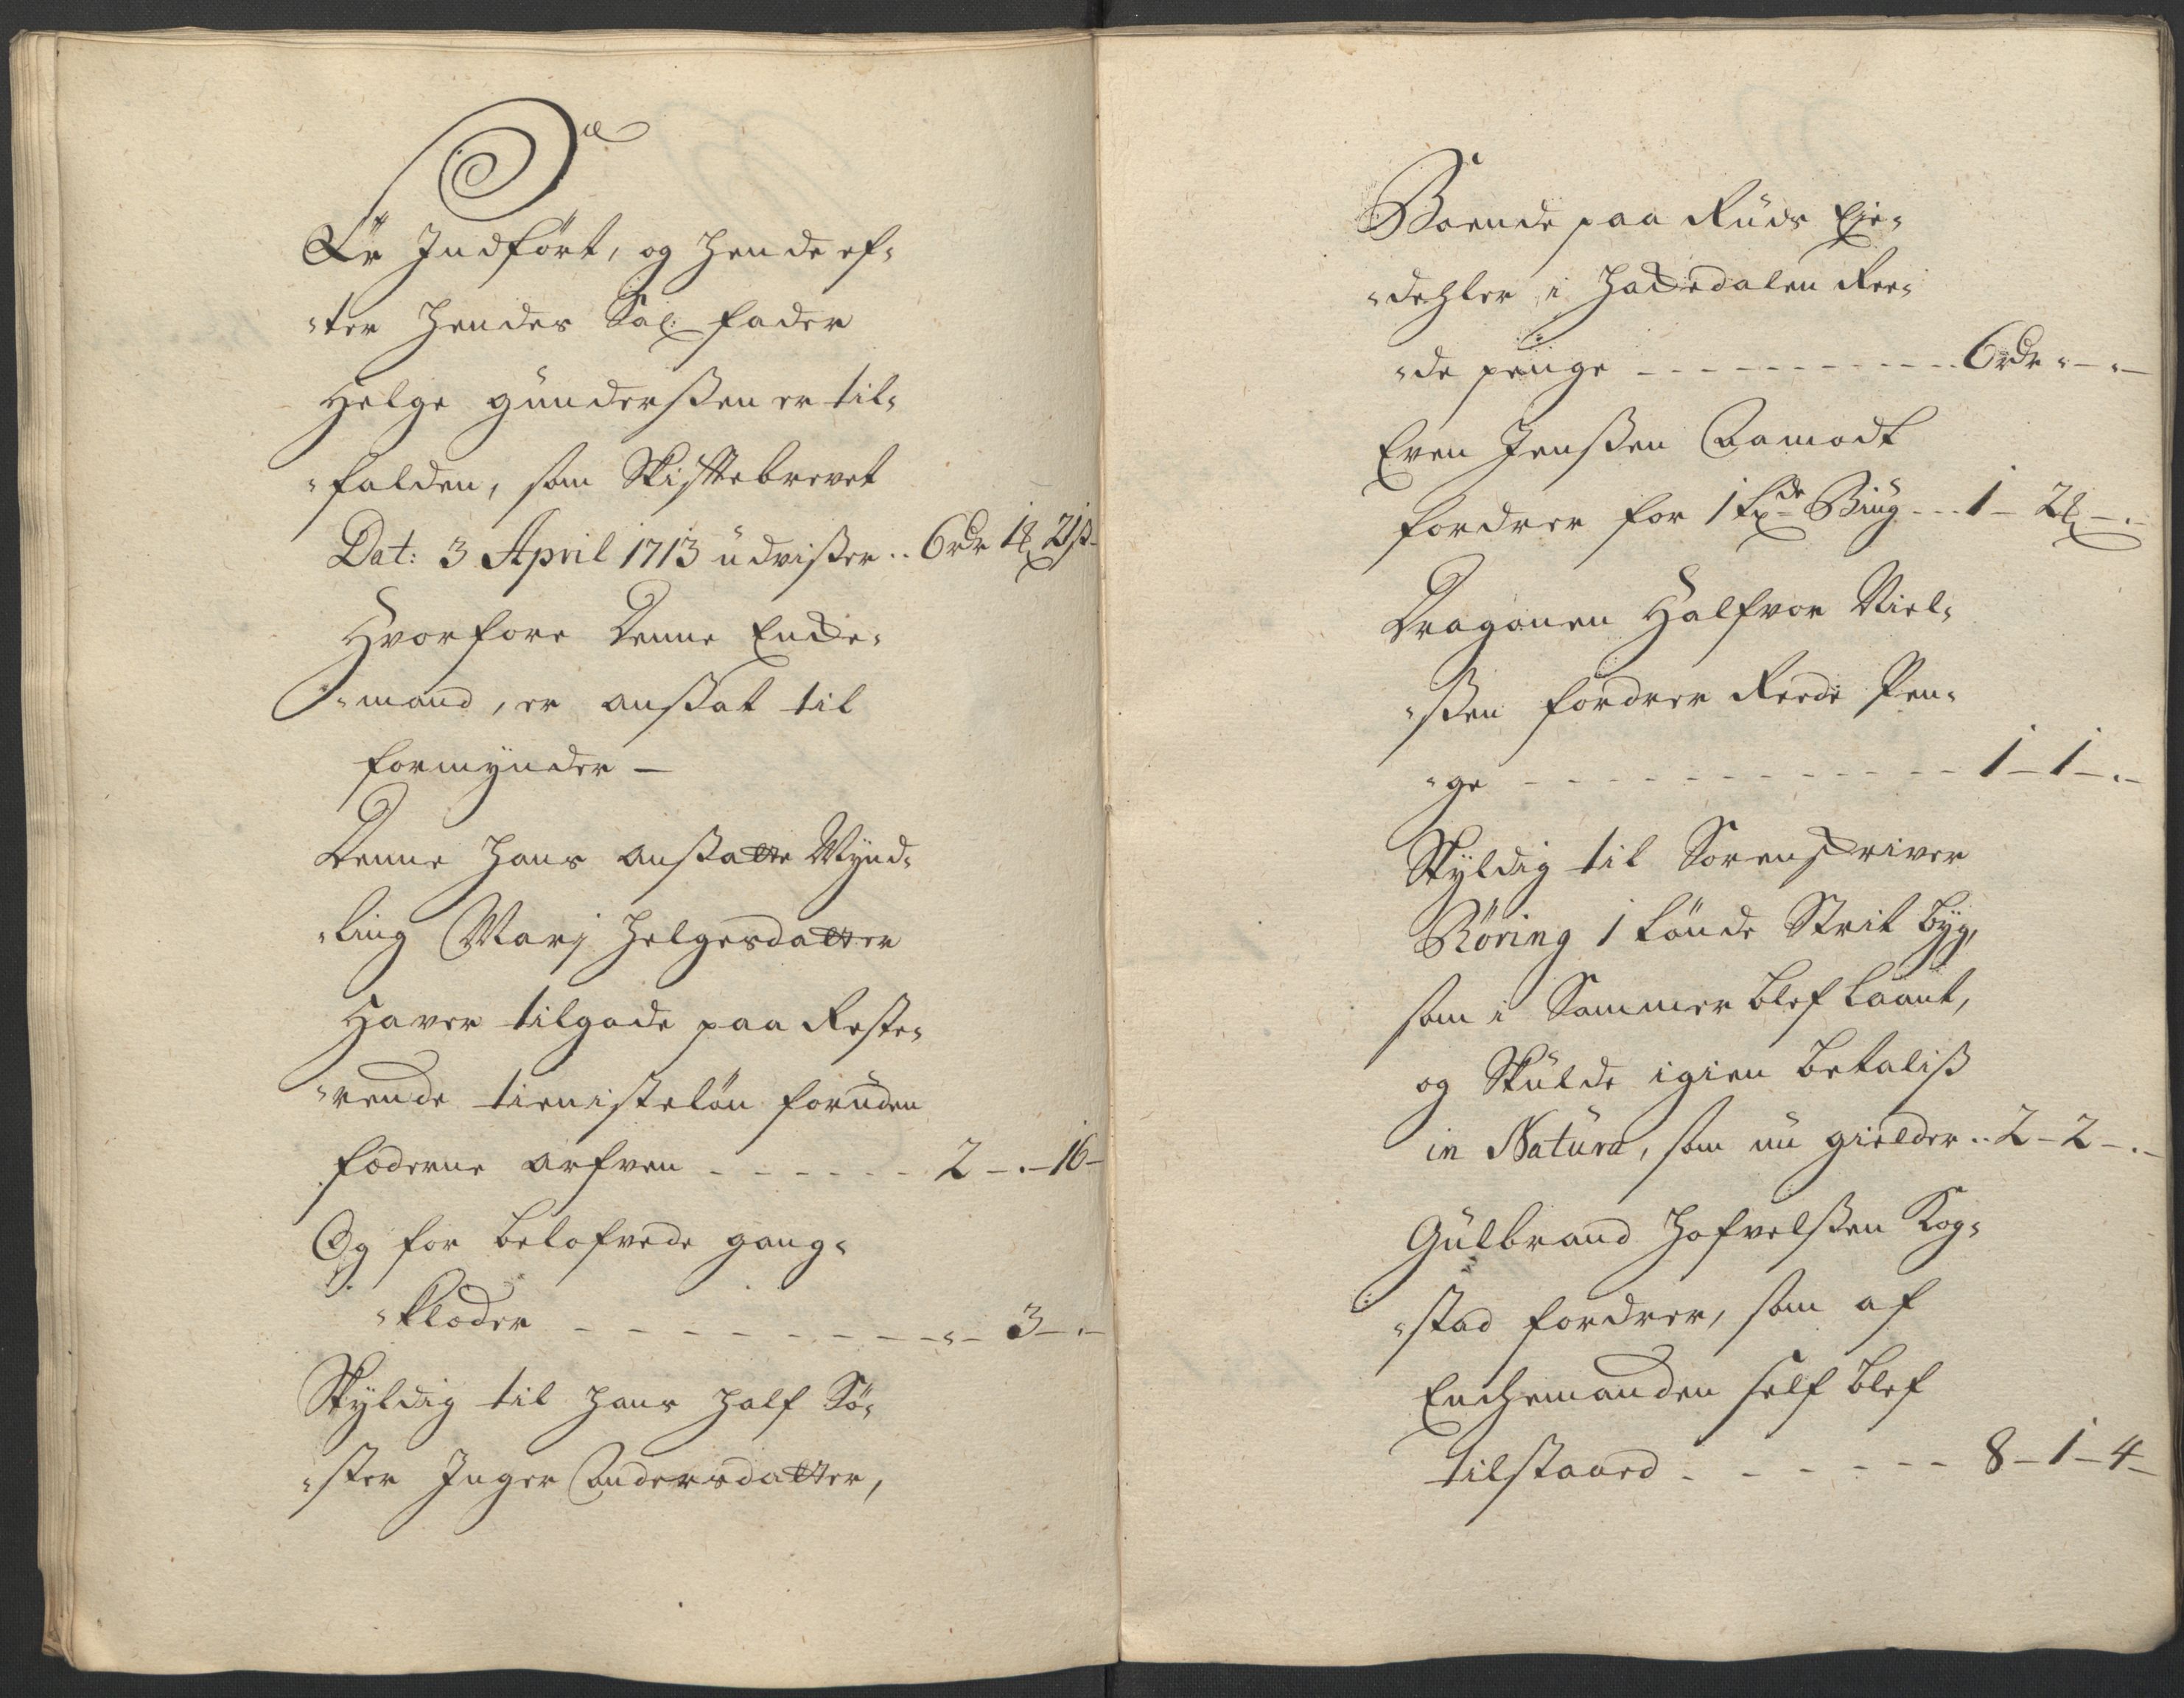 Er Indført, og hende ef-
-ter hendes Sal: fader
Helge Gunderßen er til-
-falden, som Skiftebrevet
Dat: 3 April 1713 udvißer .. 6 rdr 1 2 ß
Hvorfore denne Encke-
-mand, er anßat til
formynder —
Denne hans anßatte Mynd-
-ling Marj Helgesdatter
Haver tilgode paa Reste-
-rende tienisteløn foruden
föderne arfven - - - - - - 2 - . - 16 -
Og for belofvede gang-
-klæder - - - - - - - - - 3 - . -
Skyldig til hans half Sø-
-ster Inger Andersdatter,
Boende paa Ruds Eje-
-dehler i Hackedalen Ree-
-de penge - - - - - - - - - - - 6 rdr - . -
Even Jenßen Aamodt
fordrer for 1 Biug - - - 1 - 2 - . -
Dragonen Halfvor Niel-
-ßen fordrer Reede Pen-
-ge - - - - - - - - - - - - 1 - 1 - . -
Skyldig til Sorenskriver
Röring 1 tønde Strit byg,
som i Sommer blef laant,
og Skulde igien betaliß
in Natura, som nu gielder .. 2 - 2 - . -
Gulbrand Hofvelßen Kog-
-stad fordrer, som af
Enchemanden self blef
tilstaaed - - - - - - 8 - 1 - 4 -